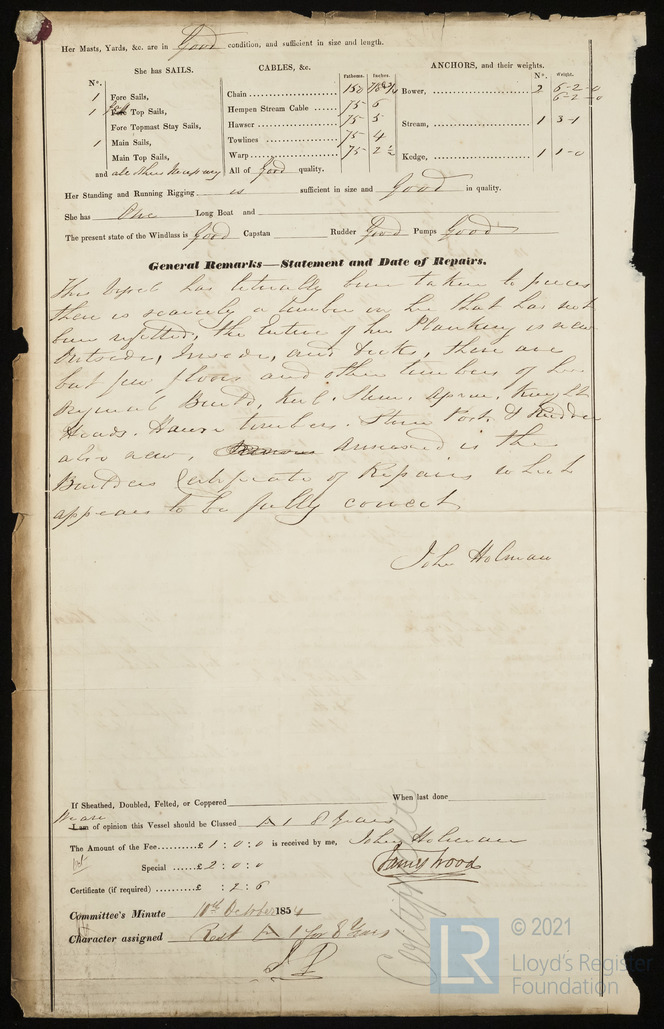 Her Masts, Yards, &c. are in Good condition, and sufficient in size and length.
She has SAILS.
CABLES, &c.
ANCHORS, and their weights.
Fathoms. Inches.
N°. Weight.
N°.
1 Fore Sails,
1 Fore Top Sails,
Fore Topmast Stay Sails,
1 Main Sails,
Main Top Sails,
and all others necessary
Chain 150
Hempen Stream Cable 75 6
Hawser 75 5
Towlines 75 4
Warp 75 2 ½
All of Good quality.
Bower, 2 6-2-0
6-2-0
Stream, 1 3-1
Kedge, 1 1-0
Her Standing and Running Rigging is sufficient in size and Good in quality.
She has One Long Boat and
The present state of the Windlass is Good Capstan Rudder Good Pumps Good
General Remarks—Statement and Date of Repairs.
This Vessel has literally been taken to pieces
there is scarcely a timber in her that has not
been refitted, the Entire of her Planking is new
Outside, Inside, and Decks, there are
but few floors and other timbers of her
Original Build, Keel, Stem, Apron, Knight
Heads, Hawse timbers, Stern Post & Rudder
also new, annexed is the
Builders Certificate of Repairs which
appears to be fully correct
John Holman
If Sheathed, Doubled, Felted, or Coppered When last done
We are
I am of opinion this Vessel should be Classed A 1 8 Years
The Amount of the Fee £ 1 : 0 : 0 is received by me, John Holman
Special £ 2 : 0 : 0 James Wood
Certificate (if required) £ : 2 : 6
Committee's Minute 10th October 1854
Character assigned Rest A 1 for 8 Years
LR
© 2021
Lloyd's Register
Foundation